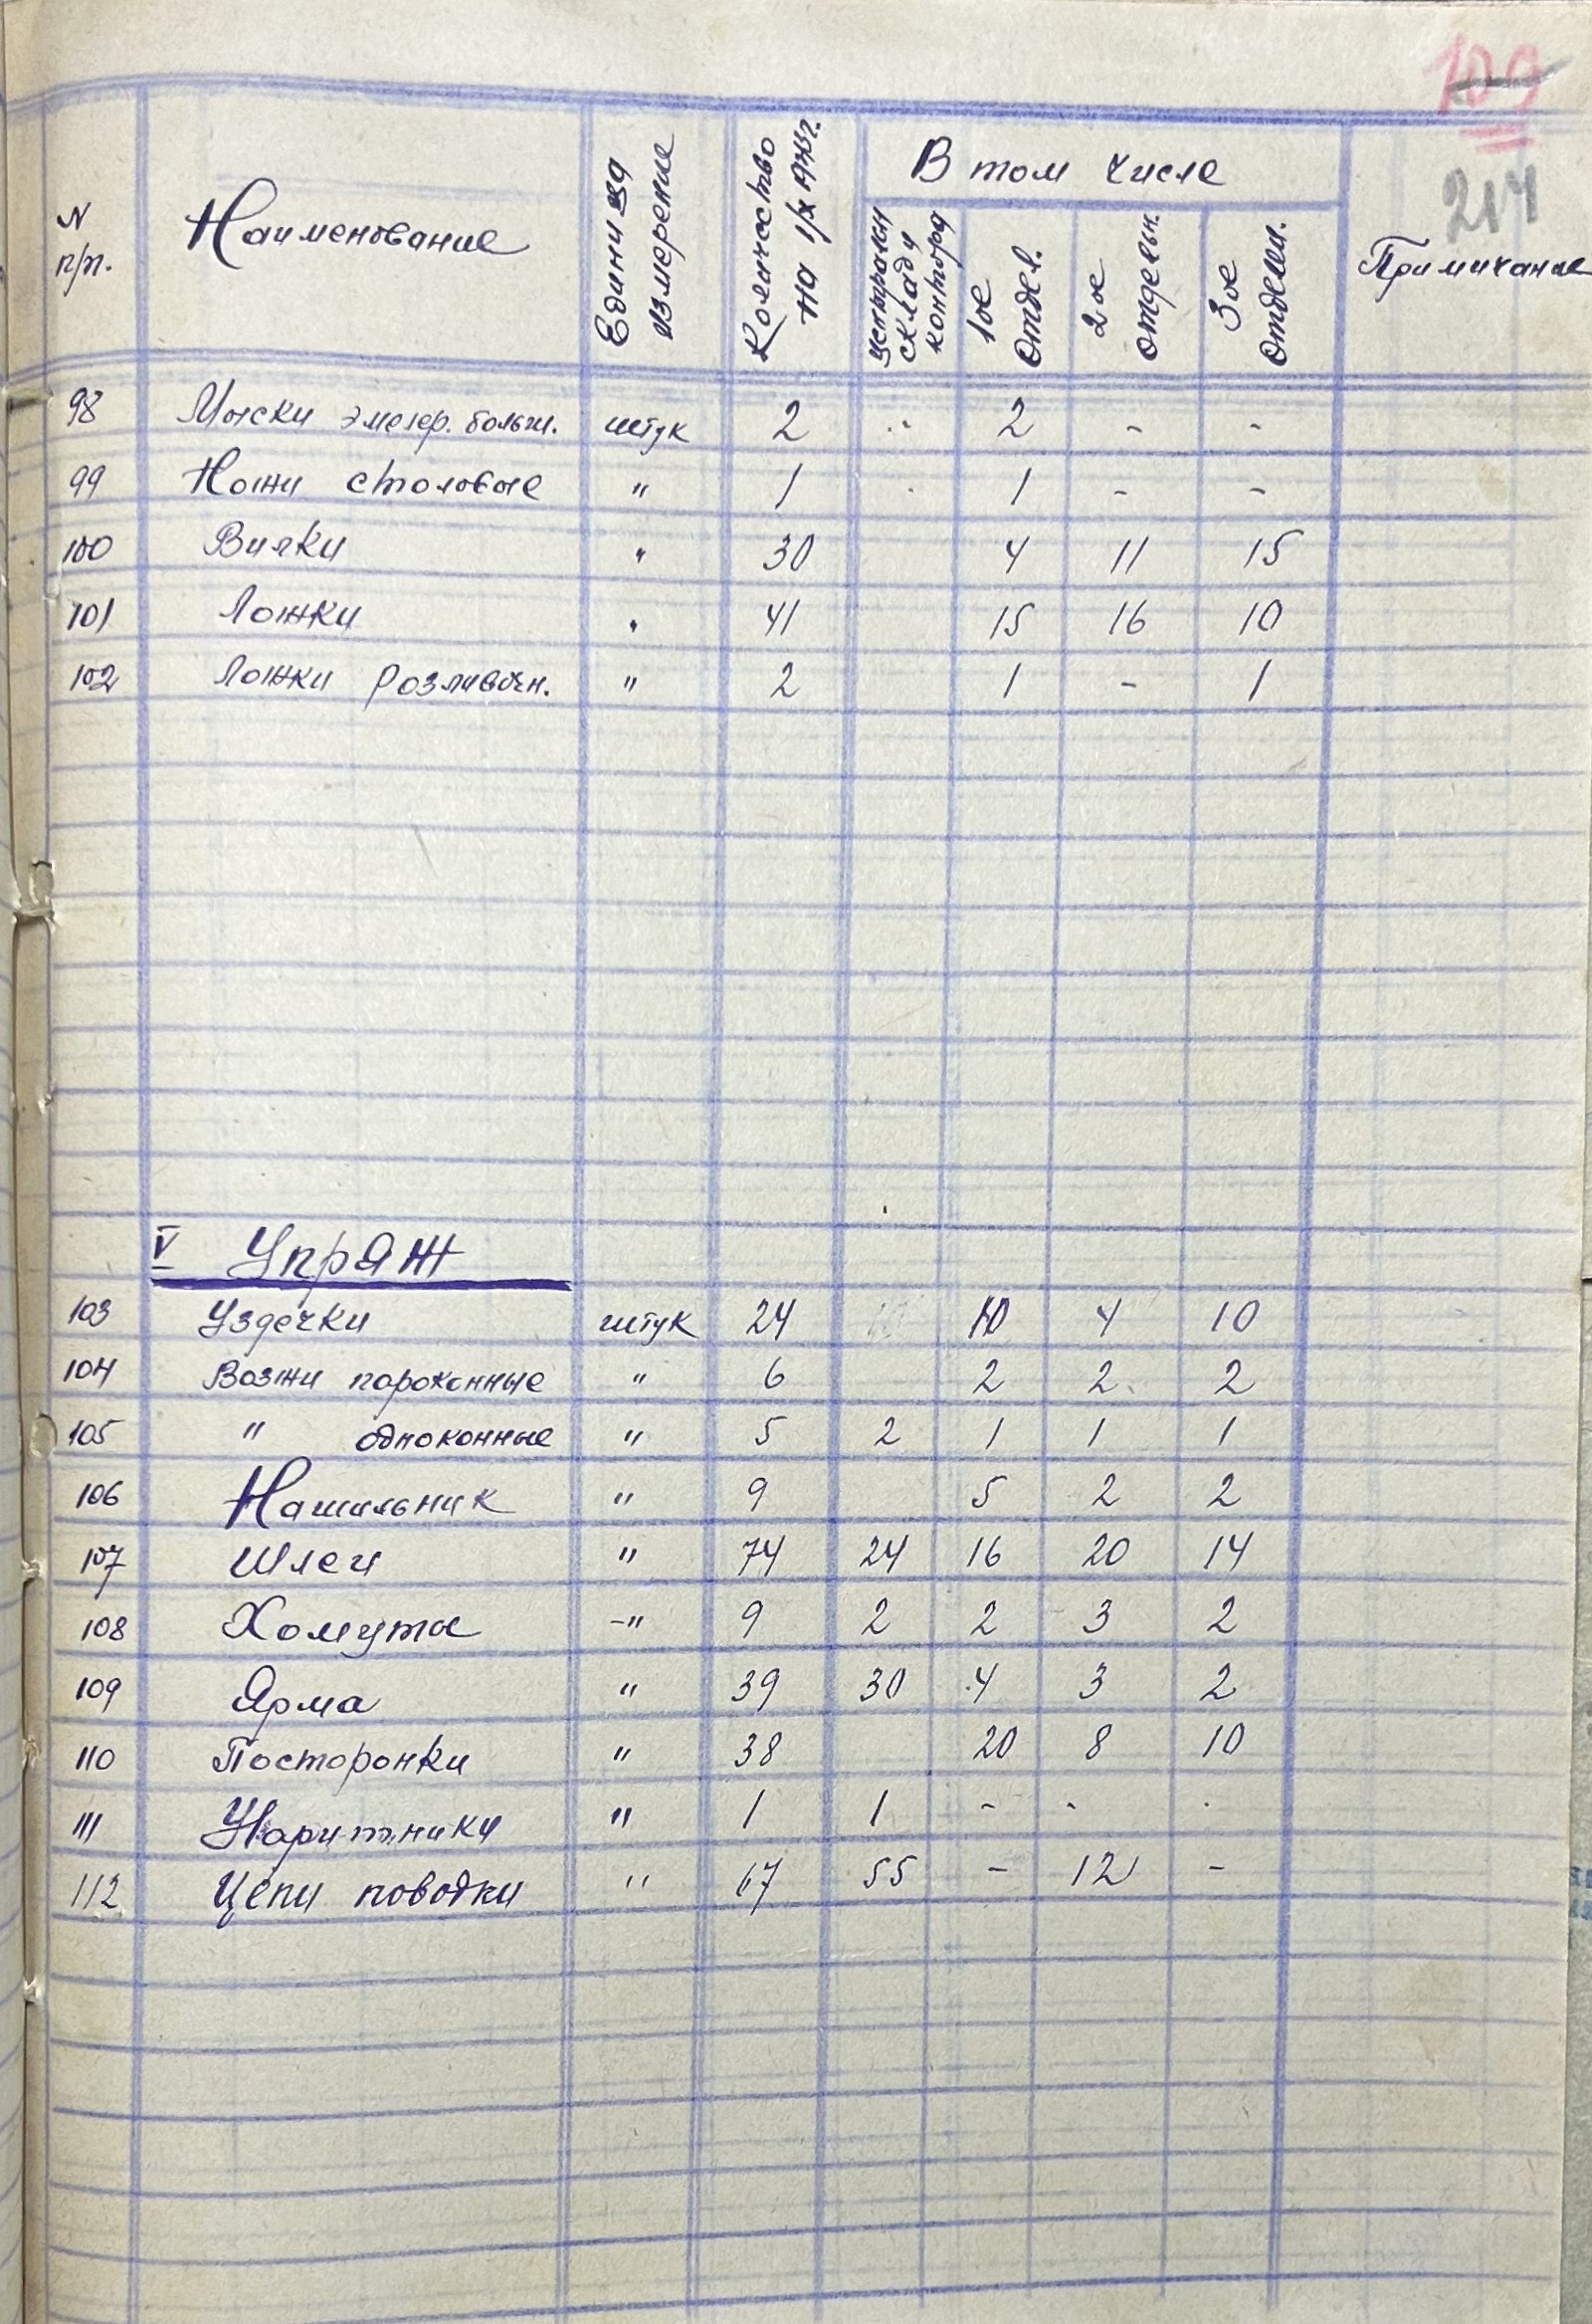 109
214
N п/п.
Наименование
Единица измерение
Количество на 1/х
В том числе
централн склад и контора
1ое отдел.
2ое отделн.
3ое отделен.
Примичание
98 Мыски эмелер. больш. штук 2 - 2 - -
99 Ножи столовые " 1 1 - -
100 Вилки " 30 4 11 15
101 Ложки " 41 15 16 10
102 Ложки розливочн. " 2 1 - 1
V Упряж
103 Уздечки штук 24 10 4 10
104 Возжи пароконные " 6 2 2 2
105 " одноконные " 5 2 1 1 1
106 Нашильник " 9 5 2 2
107 Шлеи " 74 24 16 20 14
108 Хомуты -" 9 2 2 3 2
109 Ярма " 39 30 4 3 2
110 Посторонки " 38 20 8 10
111 " 1 1 - - -
112 Цепи поводки " 67 55 - 12 -